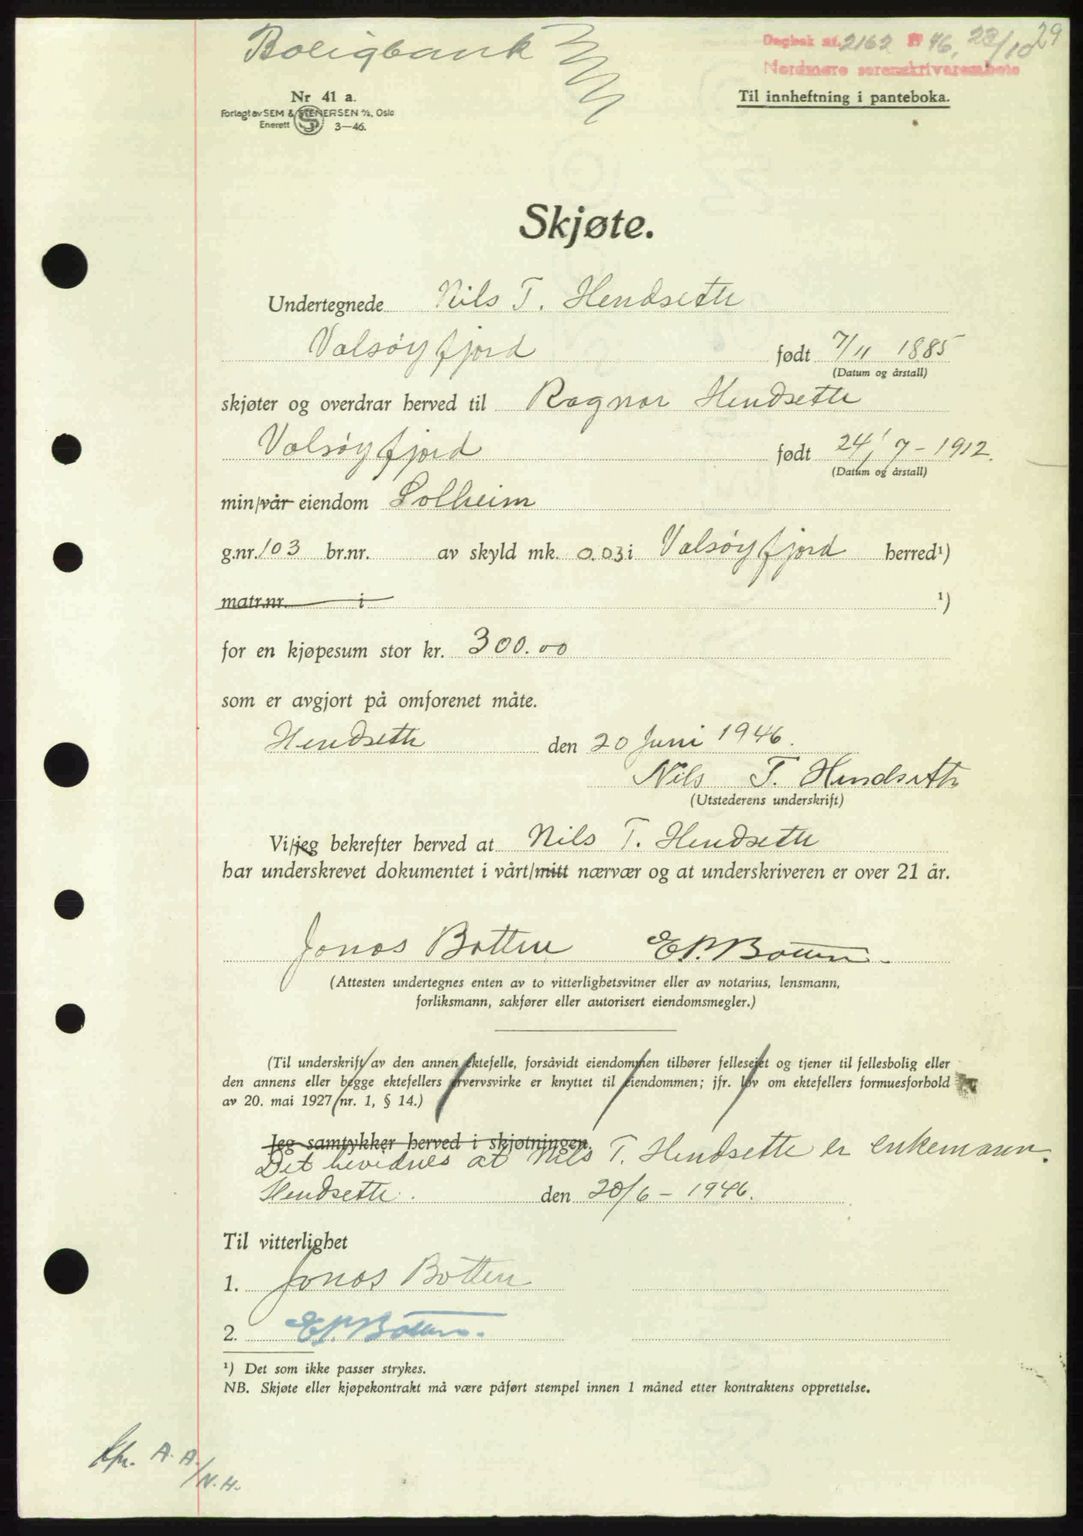 Boligbank
Dagbok nr. 2162 19 46, 23/10 29
Nordmøre sorenskriverembete
Nr 41 a.
Forlagt av SEM & STENERSEN A/S, Oslo
Enerett 3—46.
Til innheftning i panteboka.
Skjøte.
Undertegnede Nils T. Hendseth
Valsøyfjord født 7/11 1885
(Datum og årstall)
skjøter og overdrar herved til Ragnar Hendseth
Valsøyfjord født 24/7 - 1912.
(Datum og årstall)
min/vår eiendom Solheim
g.nr. 103 br.nr. av skyld mk. 0.03 i Valsøyfjord herred¹)
matr.nr. i ¹)
for en kjøpesum stor kr. 300.00
som er avgjort på omforenet måte.
Hendseth den 20 Juni 1946.
Nils T. Hendseth
(Utstederens underskrift)
Vi/jeg bekrefter herved at Nils T. Hendseth
har underskrevet dokumentet i vårt/mitt nærvær og at underskriveren er over 21 år.
Jonas Botten E.P. Botten.
(Attesten undertegnes enten av to vitterlighetsvitner eller av notarius, lensmann,
forliksmann, sakfører eller autorisert eiendomsmegler.)
(Til underskrift av den annen ektefelle, forsåvidt eiendommen tilhører felleseiet og tjener til fellesbolig eller
den annens eller begge ektefellers ervervsvirke er knyttet til eiendommen; jfr. lov om ektefellers formuesforhold
av 20. mai 1927 nr. 1, § 14.)
Jeg samtykker herved i skjøtningen.
Det bevidnes at Nils T. Hendseth er enkemann.
Hendseth. den 20/6 - 1946.
Til vitterlighet
1. Jonas Botten
2. E.P. Botten.
¹) Det som ikke passer strykes.
NB. Skjøte eller kjøpekontrakt må være påført stempel innen 1 måned etter kontraktens opprettelse.
A.A./N.H.